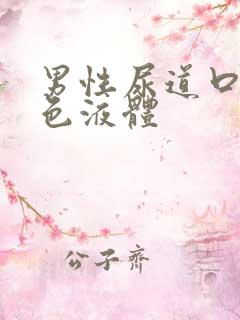 男性尿道口
色液體
公子齊